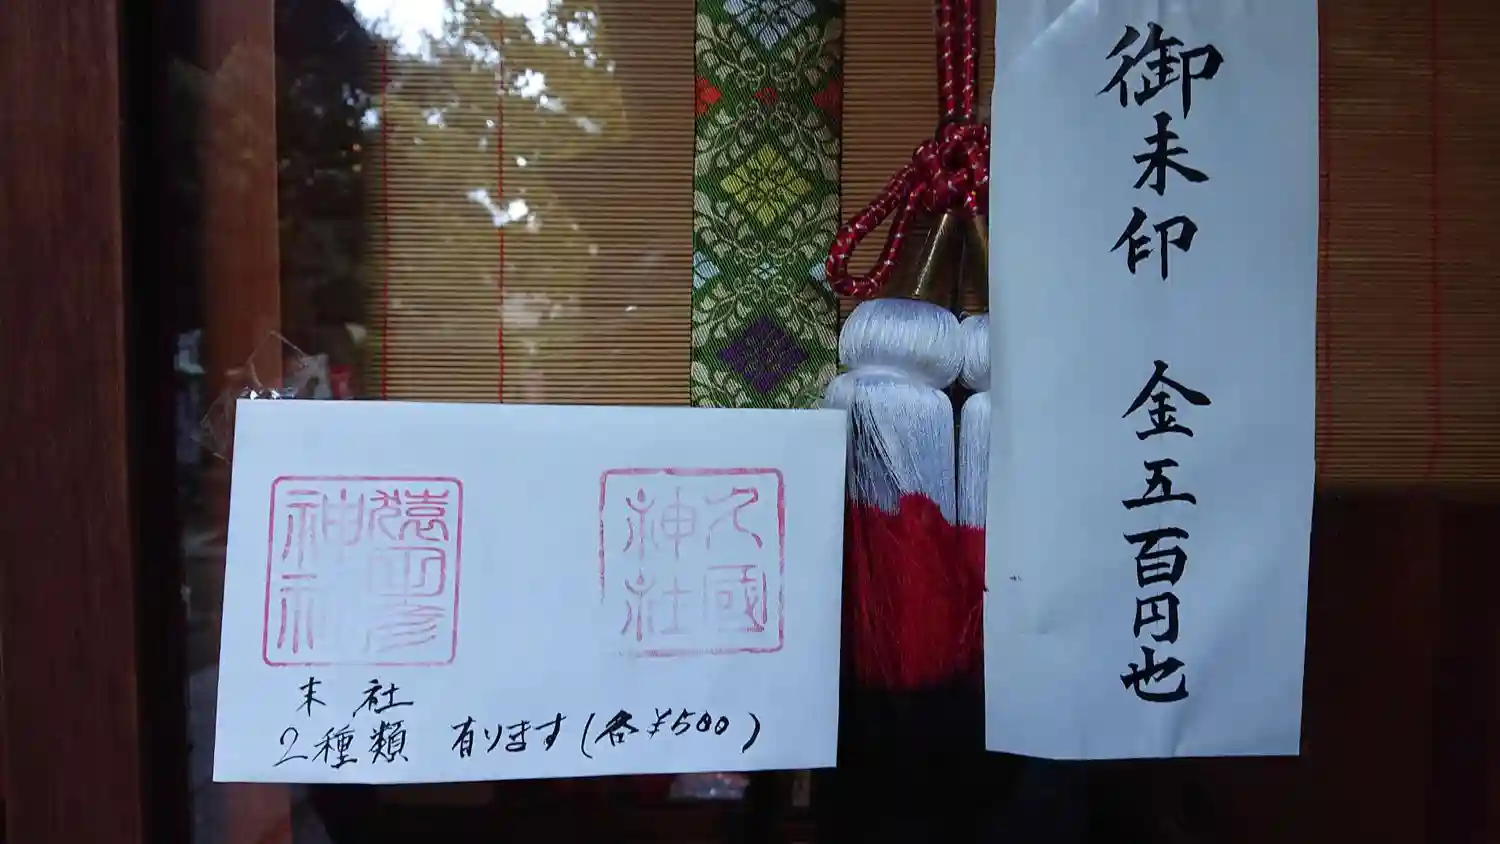 御朱印 金五百円也
猿田彦
神社
久國
神社
末社
2種類 有ります(各¥500)